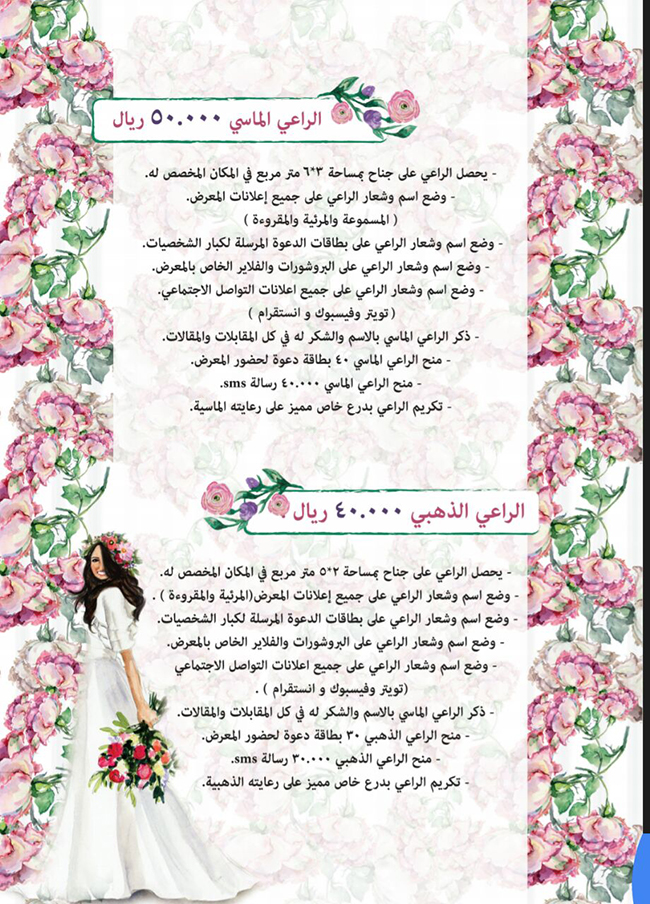 الراعي الماسي ٥٠.٠٠٠ ريال
- يحصل الراعي على جناح بمساحة ٣*٦ متر مربع في المكان المخصص له.
- وضع اسم وشعار الراعي على جميع إعلانات المعرض.
( المسموعة والمرئية والمقروءة )
- وضع اسم وشعار الراعي على بطاقات الدعوة المرسلة لكبار الشخصيات.
- وضع اسم وشعار الراعي على البروشورات والفلاير الخاص بالمعرض.
- وضع اسم وشعار الراعي على جميع اعلانات التواصل الاجتماعي.
( تويتر وفيسبوك و انستقرام )
- ذكر الراعي الماسي بالاسم والشكر له في كل المقابلات والمقالات.
- منح الراعي الماسي ٤٠ بطاقة دعوة لحضور المعرض.
- منح الراعي الماسي ٤٠.٠٠٠ رسالة sms.
- تكريم الراعي بدرع خاص مميز على رعايته الماسية.
الراعي الذهبي ٤٠.٠٠٠ ريال .
- يحصل الراعي على جناح بمساحة ٢*٥ متر مربع في المكان المخصص له.
- وضع اسم وشعار الراعي على جميع إعلانات المعرض(المرئية والمقروءة ) .
- وضع اسم وشعار الراعي على بطاقات الدعوة المرسلة لكبار الشخصيات.
- وضع اسم وشعار الراعي على البروشورات والفلاير الخاص بالمعرض.
- وضع اسم وشعار الراعي على جميع اعلانات التواصل الاجتماعي
(تويتر وفيسبوك و انستقرام ) .
- ذكر الراعي الماسي بالاسم والشكر له في كل المقابلات والمقالات.
- منح الراعي الذهبي ٣٠ بطاقة دعوة لحضور المعرض.
- منح الراعي الذهبي ٣٠.٠٠٠ رسالة sms.
- تكريم الراعي بدرع خاص مميز على رعايته الذهبية.